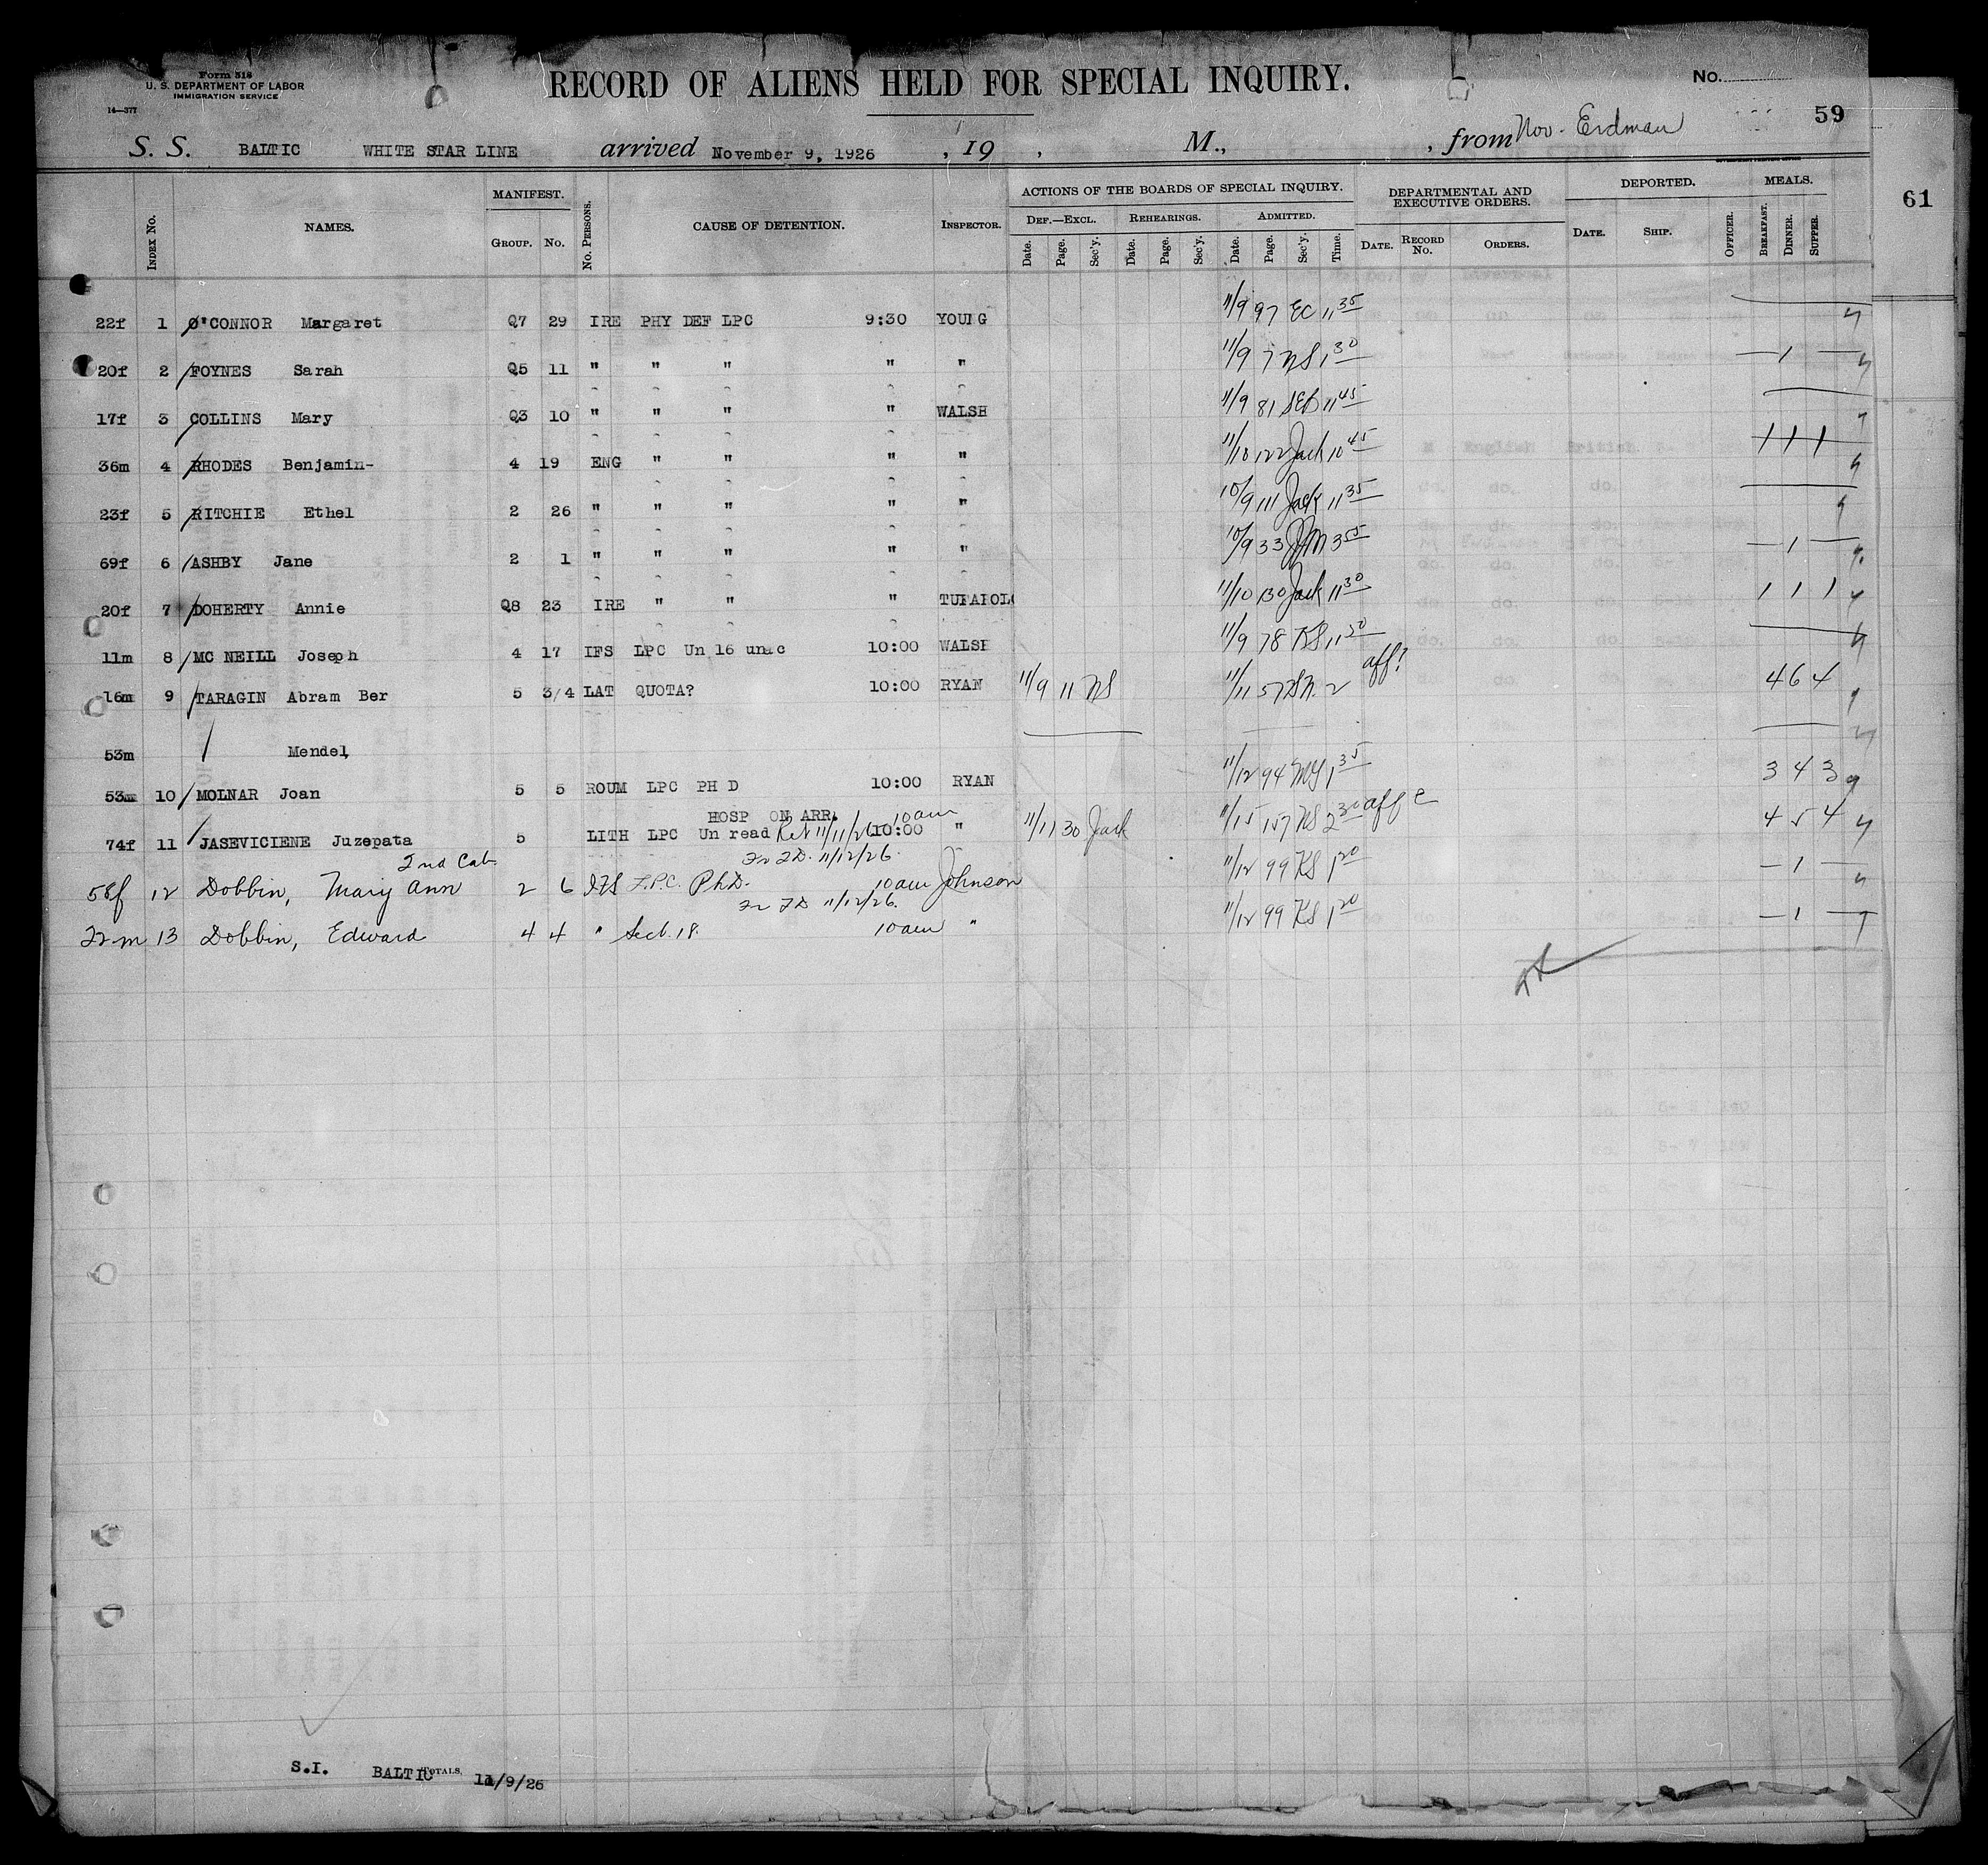 Form 518
U. S. DEPARTMENT OF LABOR
IMMIGRATION SERVICE
14—377
RECORD OF ALIENS HELD FOR SPECIAL INQUIRY.
No.
59
61
S. S. BALTIC WHITE STAR LINE arrived November 9, 1926 , 19 , M., , from Nov. Erdman
INDEX NO. NAMES. MANIFEST. GROUP. NO. NO. PERSONS. CAUSE OF DETENTION. INSPECTOR. ACTIONS OF THE BOARDS OF SPECIAL INQUIRY. DEPARTMENTAL AND EXECUTIVE ORDERS. DEPORTED. MEALS.
DEF.—EXCL. REHEARINGS. ADMITTED.
Date. Page. Sec'y. Date. Page. Sec'y. Date. Page. Sec'y. Time. DATE. RECORD NO. ORDERS. DATE. SHIP. OFFICER. BREAKFAST. DINNER. SUPPER.
22f 1 O'CONNOR Margaret Q7 29 IRE PHY DEF LPC 9:30 YOUNG 11/9 97 EC 11 35
20f 2 FOYNES Sarah Q5 11 " " " " " 11/9 7 NS 1 30 — 1 —
17f 3 COLLINS Mary Q3 10 " " " " WALSH 11/9 81 SEB 11 45
36m 4 RHODES Benjamin- 4 19 ENG " " " " 11/10 122 Jack 10 45 1 1 1
23f 5 RITCHIE Ethel 2 26 " " " " " 10/9 111 Jack 11 35
69f 6 ASHBY Jane 2 1 " " " " " 10/9 33 JJM 3 55 — 1 —
20f 7 DOHERTY Annie Q8 23 IRE " " " TUFAROLO 11/10 130 Jack 11 30 1 1 1
11m 8 MC NEILL Joseph 4 17 IFS LPC Un 16 unac 10:00 WALSH 11/9 78 KS 11 20
16m 9 TARAGIN Abram Ber 5 3/4 LAT QUOTA? 10:00 RYAN 11/9 11 NS 11/11 57 SN 2 aff? 4 6 4
53m Mendel
53m 10 MOLNAR Joan 5 5 ROUM LPC PH D 10:00 RYAN 11/12 94 MY 1 35 3 4 3
HOSP ON ARR. 10am
74f 11 JASEVICIENE Juzepata 5 LITH LPC Un read Ret 11/11/26 10:00 " 11/11 30 Jack 11/15 157 NS 2 30 aff c 4 5 4
2nd Cab. 11/12/26.
58f 12 Dobbin, Mary Ann 2 6 IFS L.P.C. Ph.D. 10am Johnson 11/12 99 KS 1 20 — 1 —
11/12/26.
22m 13 Dobbin, Edward 4 4 " Sect. 18. 10am " 11/12 99 KS 1 20 — 1 —
S.I. BALTIC TOTALS, 11/9/26